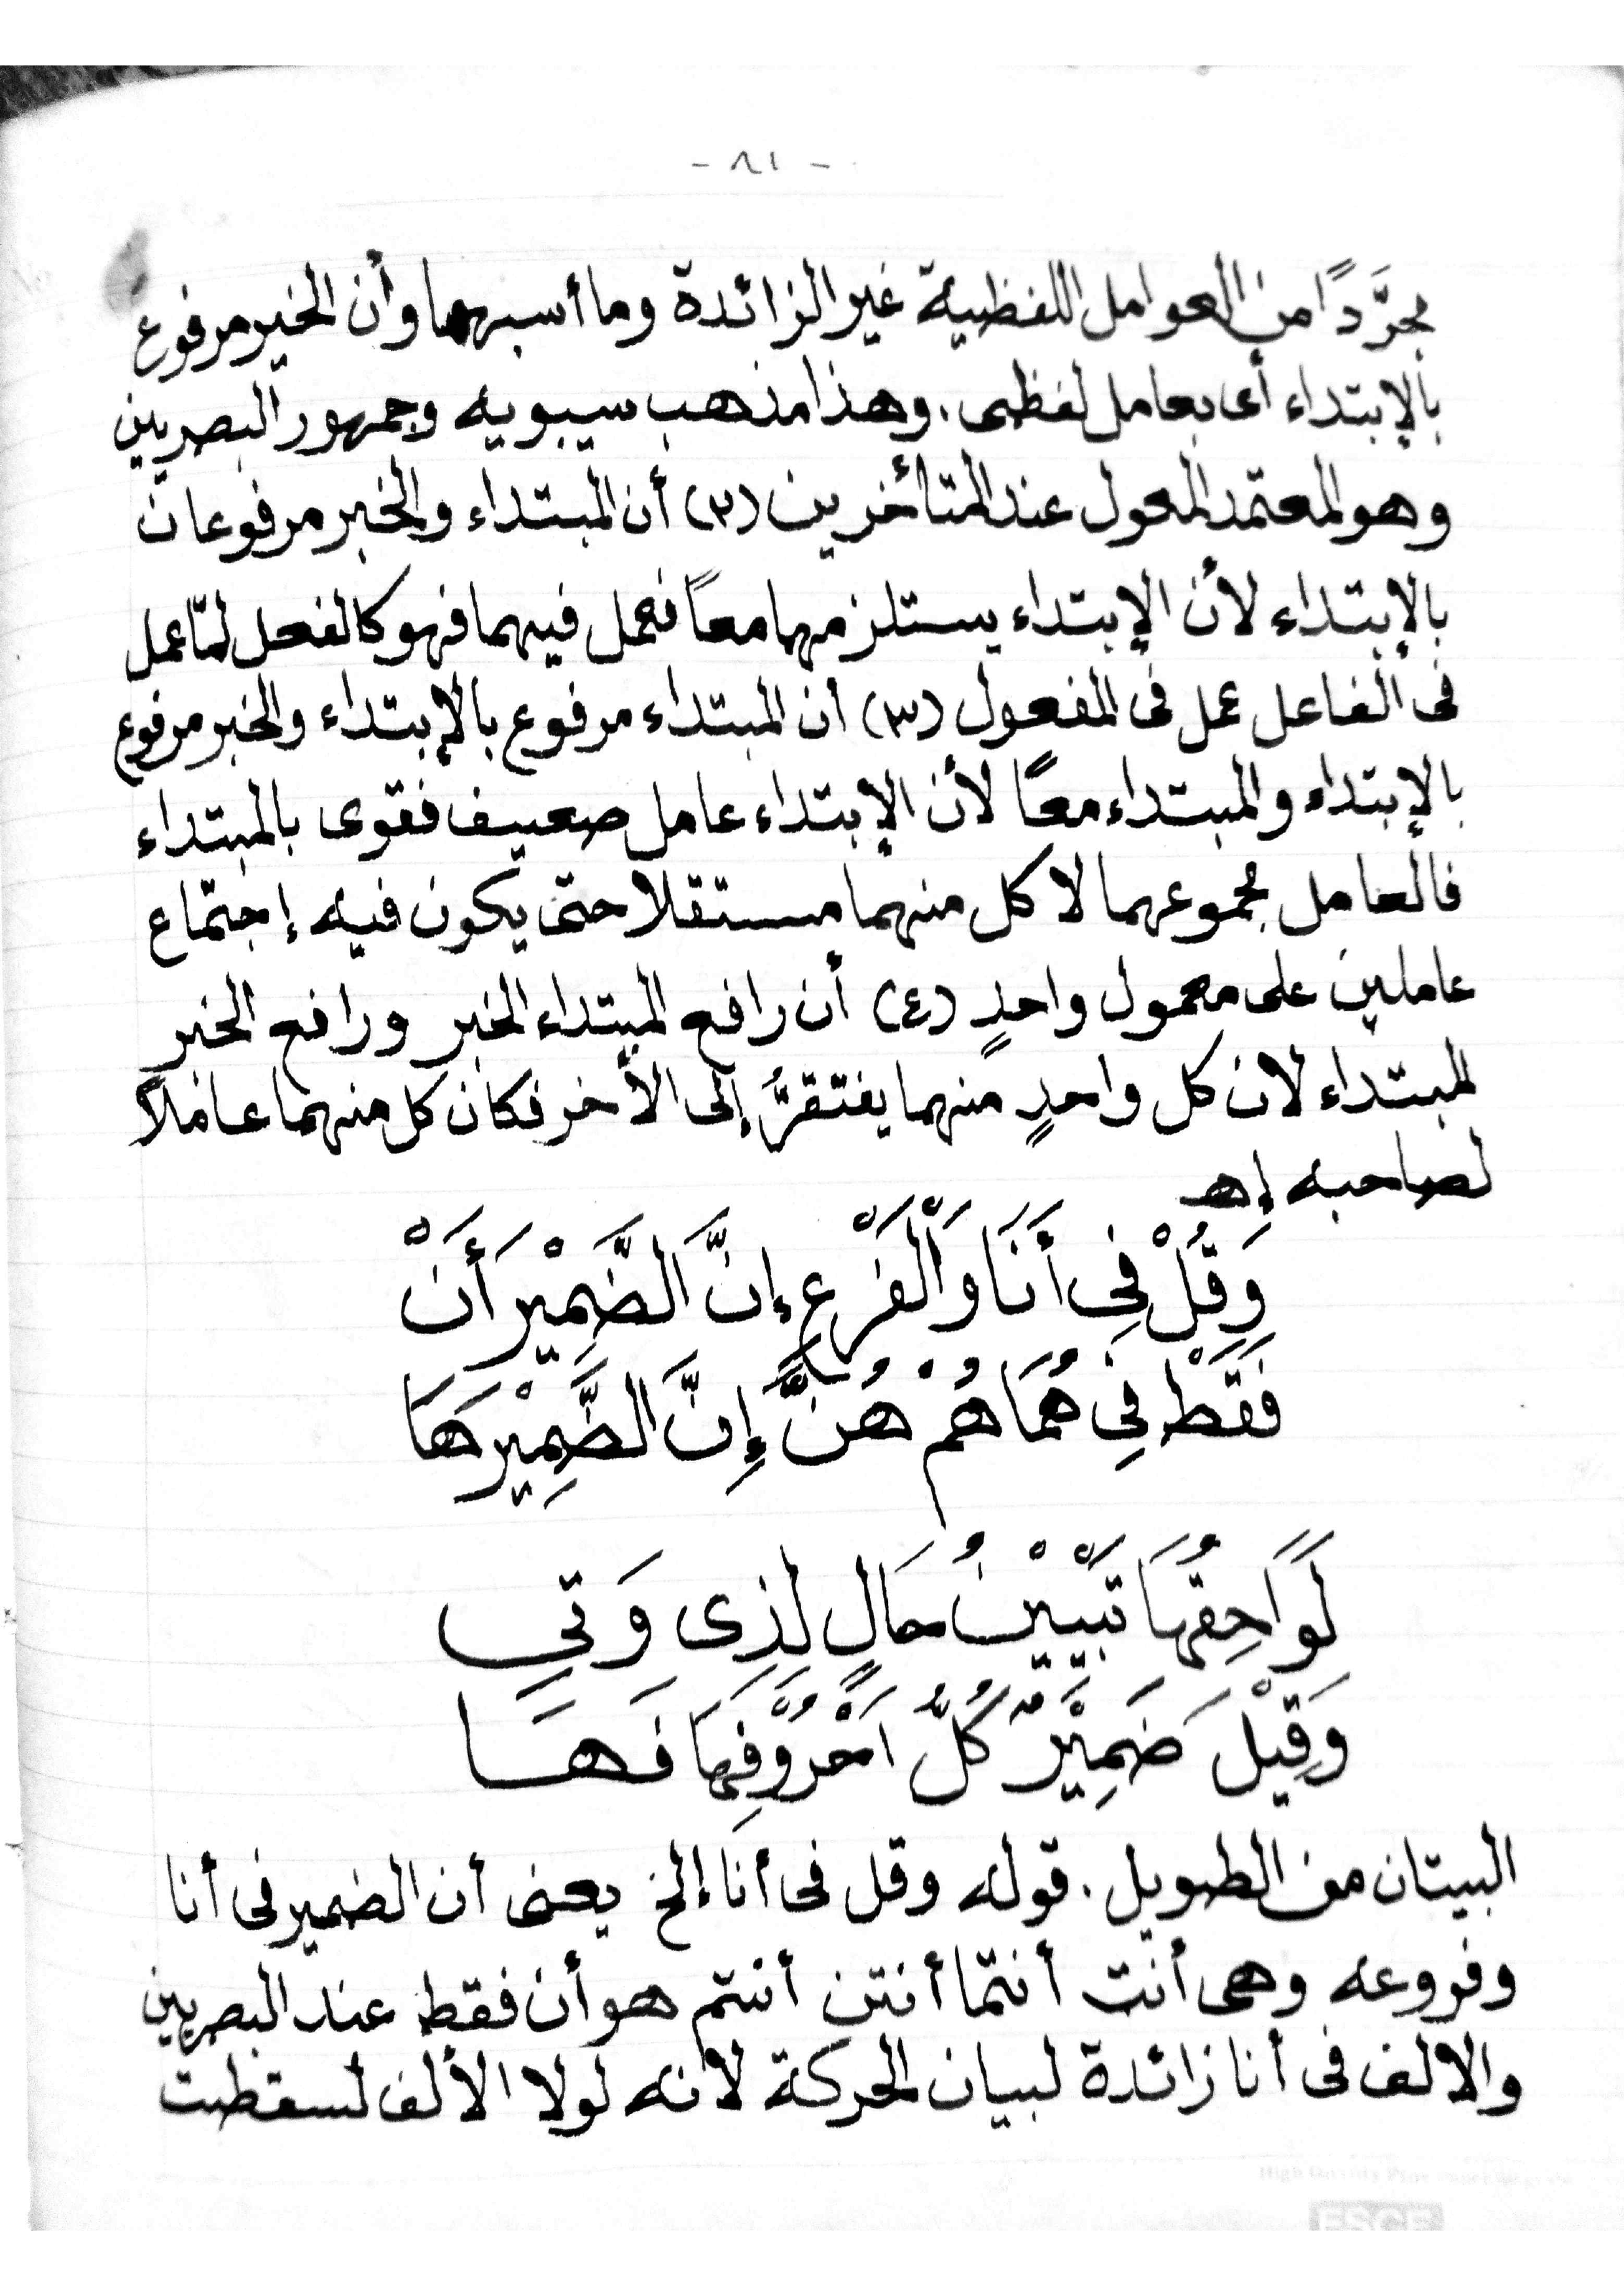 - ٨١ -
مجرَّدًا من العوامل اللفظية غير الزائدة وما أسبهها وأن الخبر مرفوع
بالإبتداء أى بعامل لفظى. وهذا مذهب سيبويه وجمهور البصريين
وهو المعتمد المعول عند المتأخرين (٢) أن المبتداء والخبر مرفوعان
بالإبتداء لأن الإبتداء يستلزمهما معاً فعمل فيهما فهو كالفعل لمّا عمل
فى الفاعل عمل فى المفعول (٣) أن المبتداء مرفوع بالإبتداء والخبر مرفوع
بالإبتداء والمبتداء معًا لأن الإبتداء عامل ضعيف فقوى بالمبتداء
فالعامل مجموعهما لا كل منهما مستقلا حتى يكون فيه إجتماع
عاملين على معمول واحدٍ (٤) أن رافع المبتداء الخبر ورافع الخبر
المبتداء لان كل واحدٍ منهما يفتقرُ إلى الأخر فكان كل منهما عاملاً
لصاحبه إهـ
وَقُلْ فِى أَنَا وَالْفَرْعِ إنَّ الضَّمِيْرَ أَنْ
فَقَطْ فِى هُمَا هُمْ هُنَّ إِنَّ الضَّمِيْرَ هَا
لَوَاحِقُهَا تَبْيِيْنُ حَالٍ لِذِى وَتِى
وَقِيْلَ ضَمِيْرٌ كُلُّ اَحْرُوْفِهَا فَهَــا
البيتان من الطويل. قوله وقل فى أنا إلخ يعنى أن الضمير فى أنا
وفروعه وهى أنت أنتما أنتن أنتم هو أن فقط عند البصريين
والالف فى أنا زائدة لبيان الحركة لانه لولا الألف لسقطت